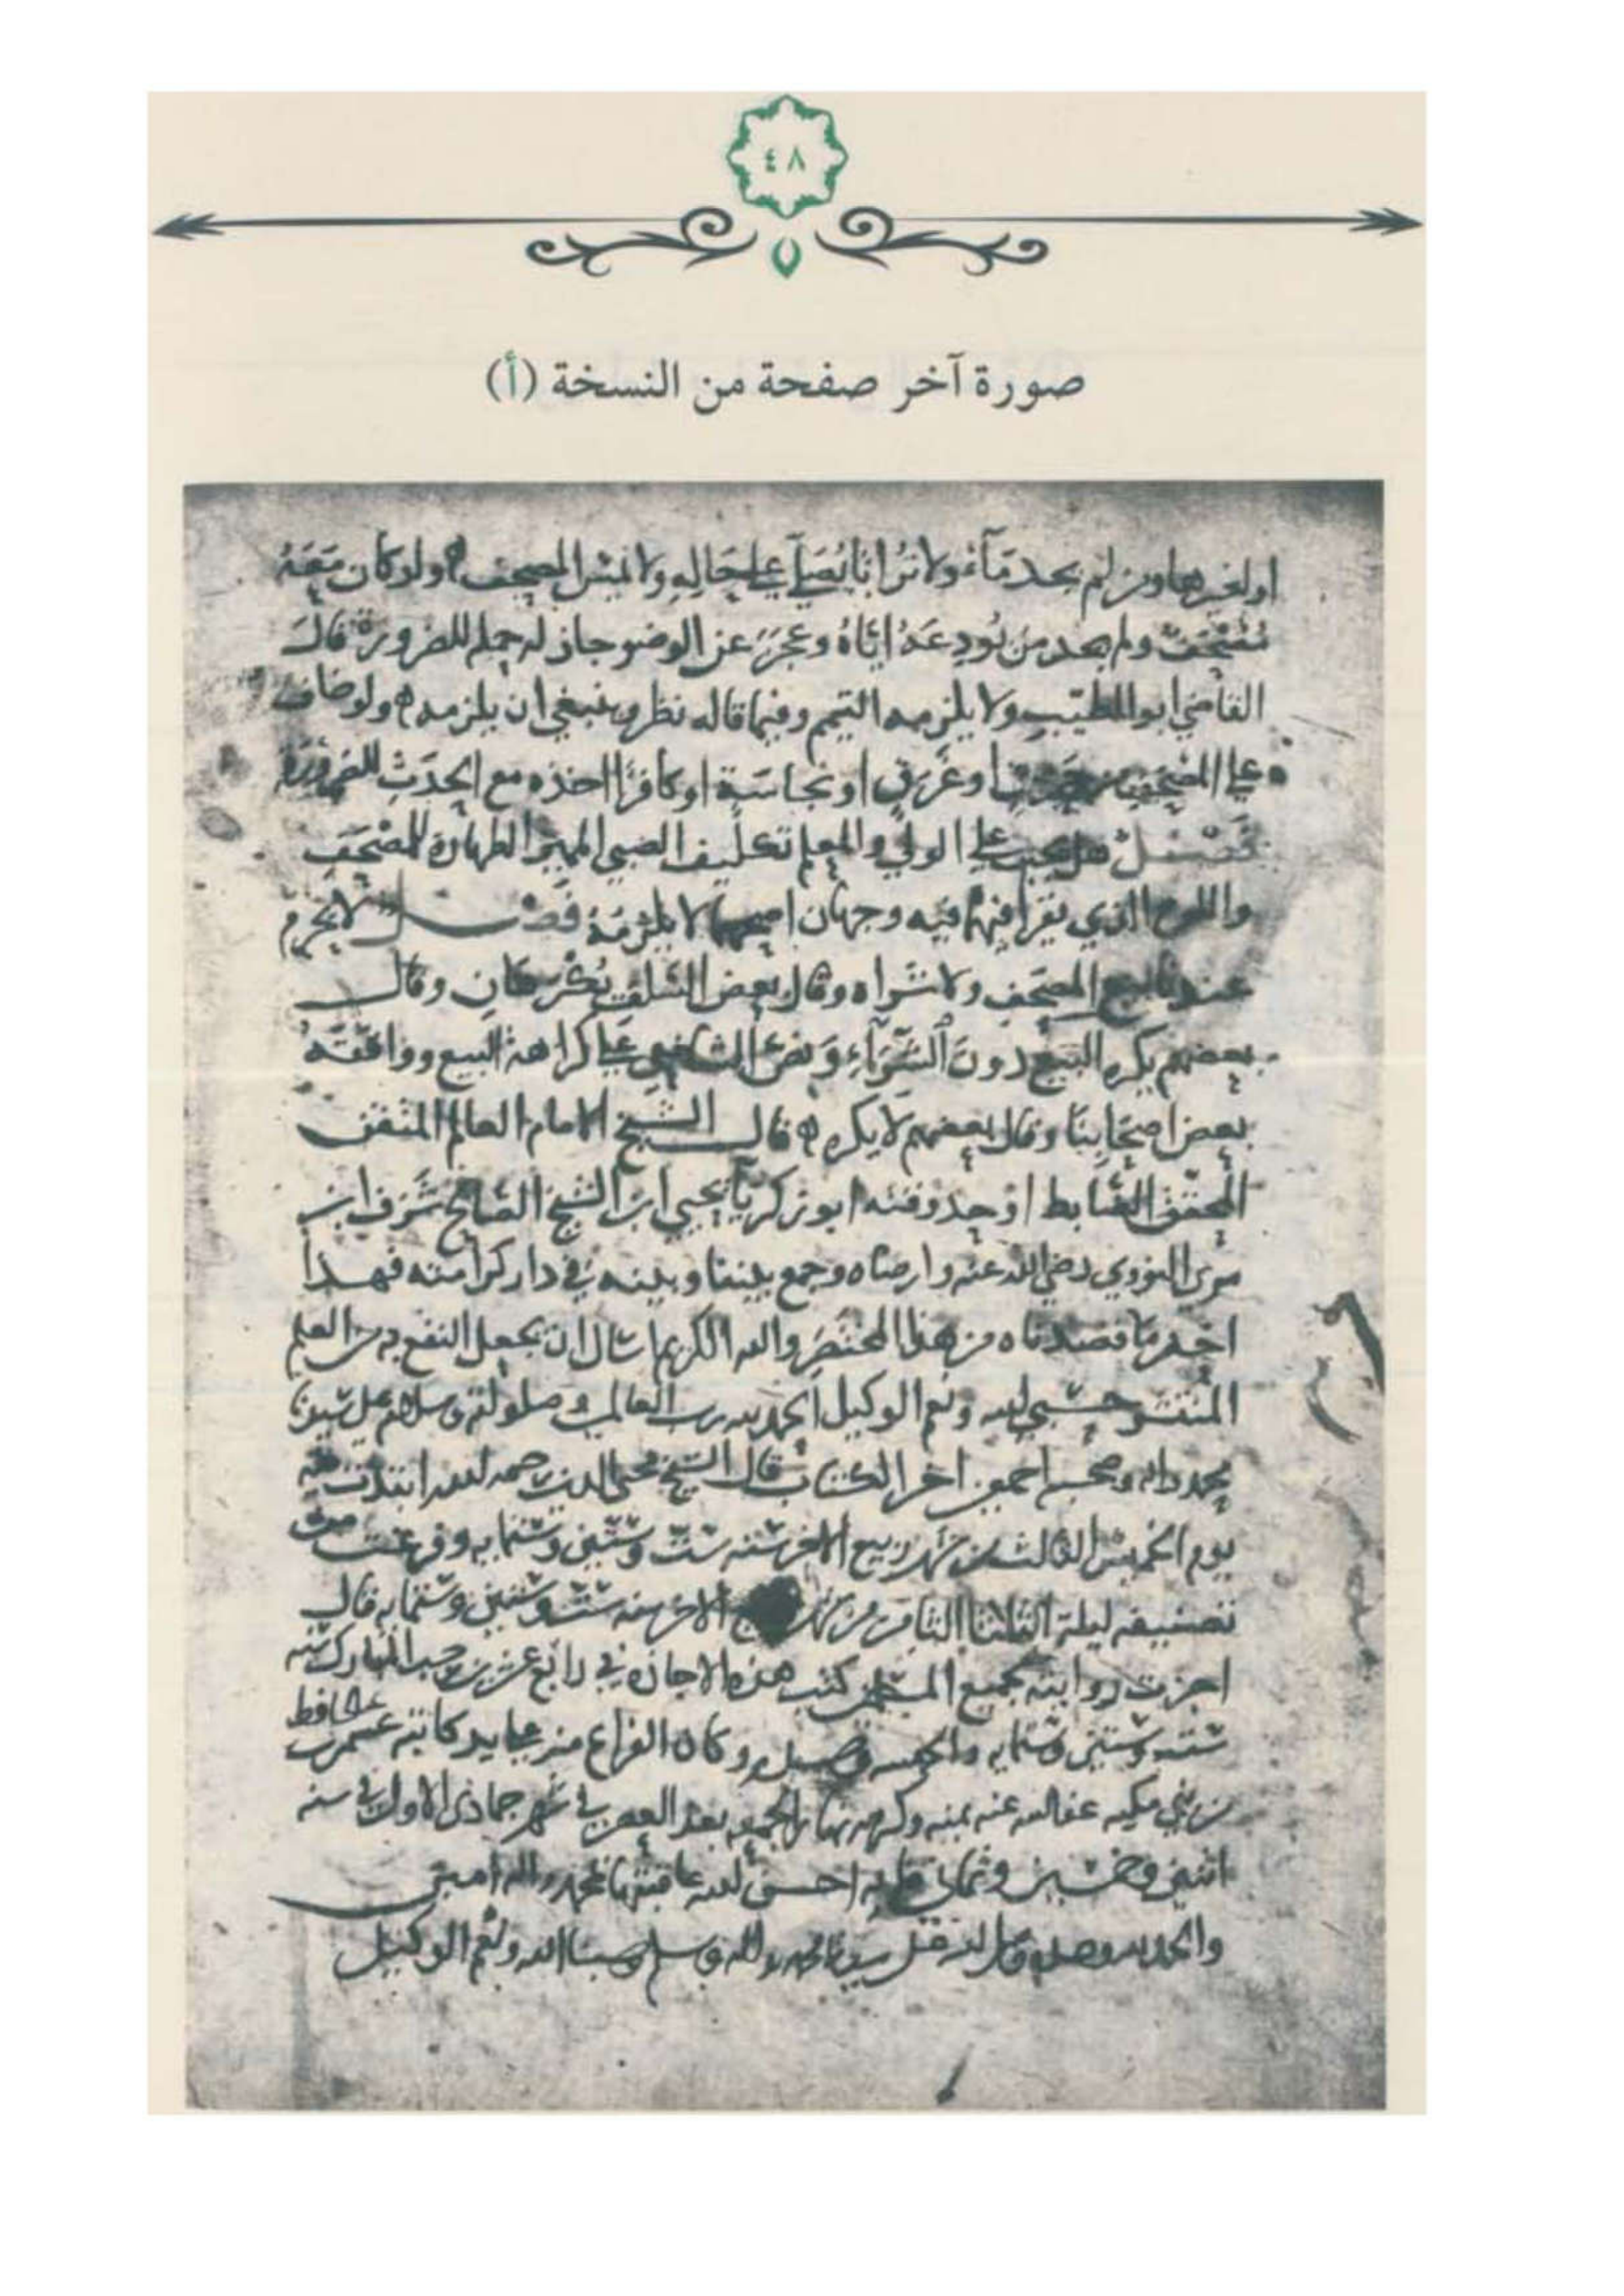 ٤٨
صورة آخر صفحة من النسخة (أ)
او لغيرها ومن لم يجد مآء ولا ترابا يصلي على حاله ولا يمس المصحف ولو كان معه
مصحف ولم يجد من يودعه اياه وعجز عن الوضو جاز له حمله للضرورة قال
القاضي ابو الطيب ولا يلزمه التيمم وفيما قاله نظر وينبغي ان يلزمه ولو خاف
على المصحف من حرق او غرق او نجاسة او كافرا اخذه مع الحدث للضرورة
فصل هل يجب على الولي والمعلم تكليف الصبي المميز الطهارة للمصحف
واللوح الذي يقرا فيهما فيه وجهان اصحهما لا يلزمه فصل لا يحرم
عندنا بيع المصحف ولا شراه وقال بعض السلف يكرهان وقال
بعضهم يكره البيع دون الشرآء ونص الشافعي على كراهة البيع ووافقه
بعض اصحابنا وقال بعضهم لا يكره قال الشيخ الامام العالم المتقن
المحقق الضابط اوحد وقته ابو زكريا يحيى ابن الشيخ الصالح شرف ابن
مري النووي رضي الله عنه وارضاه وجمع بيننا وبينه في دار كرامته فهذا
اخر ما قصدناه من هذا المختصر والله الكريم اسال ان يجعل النفع به من العلم
المنتشر حسبي الله ونعم الوكيل الحمد لله رب العالمين وصلواته وسلامه على سيدنا
محمد واله وصحبه اجمعين اخر الكتاب قال الشيخ محيى الدين رحمه الله ابتدات فيه
يوم الخميس الثالث من شهر ربيع الاخر سنه ست وستين وستمايه وفرغت من
تصنيفه ليلة الثلاثا الثامن من شهر الاخر سنه ست وستين وستمايه قال
اجزت روايته لجميع المسلمين كتب هذه الاجازه في رابع عشرين رجب المبارك سنه
ست وستين وستمايه والحمد لله وكان الفراغ منه على يد كاتبه عمر
عفا الله عنه بمنه وكرمه نهار الجمعه بعد العصر في شهر جمادى الاول في سنه
اثنين وخمسين وثمان مايه احسن الله عاقبتها بمحمد واله امين
والحمد لله وصلى الله على سيدنا محمد واله وسلم حسبنا الله ونعم الوكيل